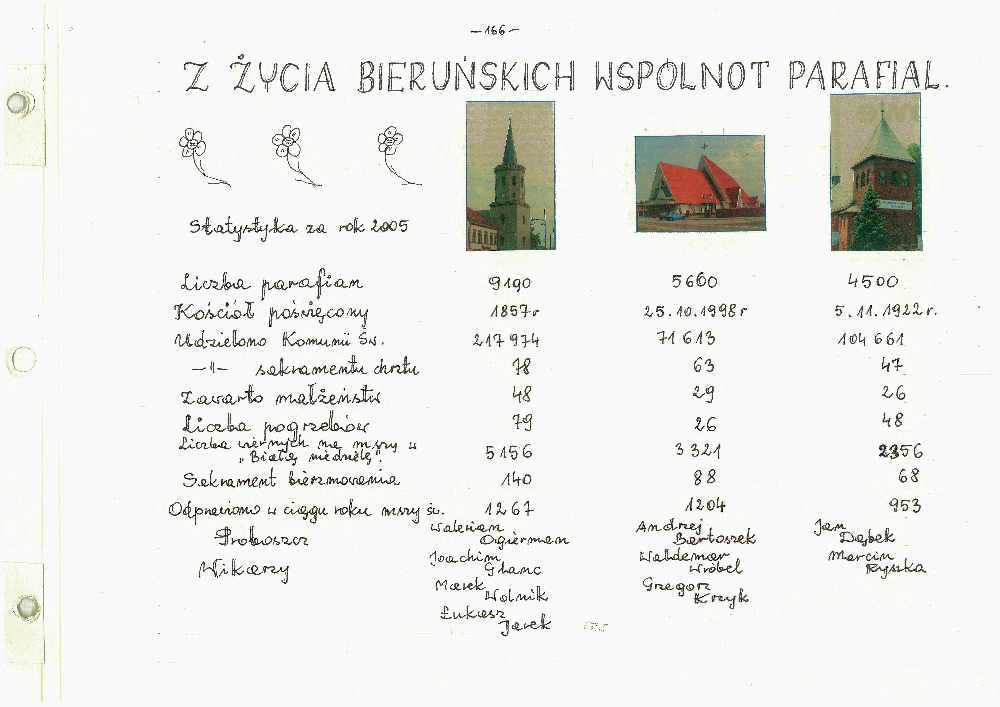 – 166 –
Z ŻYCIA BIERUŃSKICH WSPÓLNOT PARAFIAL.
Statystyka za rok 2005
Liczba parafian 9190 5600 4500
Kościół poświęcony 1857r 25.10.1998r 5.11.1922r.
Udzielono Komunii Św. 217 974 71 613 104 661
–"– sakramentu chrztu 78 63 47
Zawarto małżeństw 48 29 26
Liczba pogrzebów 79 26 48
Liczba wiernych na mszy w
"Białą niedzielę". 5156 3321 2356
Sakrament bierzmowania 140 88 68
Odprawiono w ciągu roku mszy św. 1267 1204 953
Proboszcz Walerian Ogierman Andrzej Bartoszek Jan Dąbek
Wikarzy Joachim Glanc Waldemar Wróbel Marcin Ryszka
Marek Wolnik Grzegorz Krzyk
Łukasz Jarek